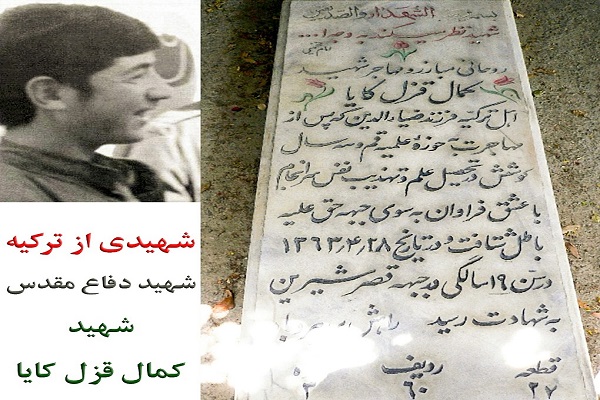 شهیدی از ترکیه
شهید دفاع مقدس
شهید
کمال قزل کایا
الشهداء والصدیقین
شهید نظر میکند به وجه ا...
روحانی مبارز و مهاجر شهید
کمال قزل کایا
اهل ترکیه فرزند ضیاءالدین که پس از
مهاجرت به حوزه علمیه قم و سه سال
کوشش در تحصیل علم و تهذیب نفس سرانجام
با عشق فراوان به سوی جبهه حق علیه
باطل شتافت و در تاریخ ۱۳۶۳٫۴٫۲۸
در سن ۱۹ سالگی در جبهه قصر شیرین
به شهادت رسید راهش
قطعه ردیف
۲۷ ۶۰ ۲